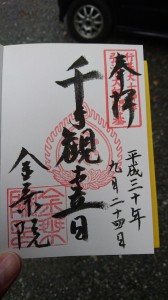 奉拝
平成三十年
九月二十四日
千手観音
金乗院